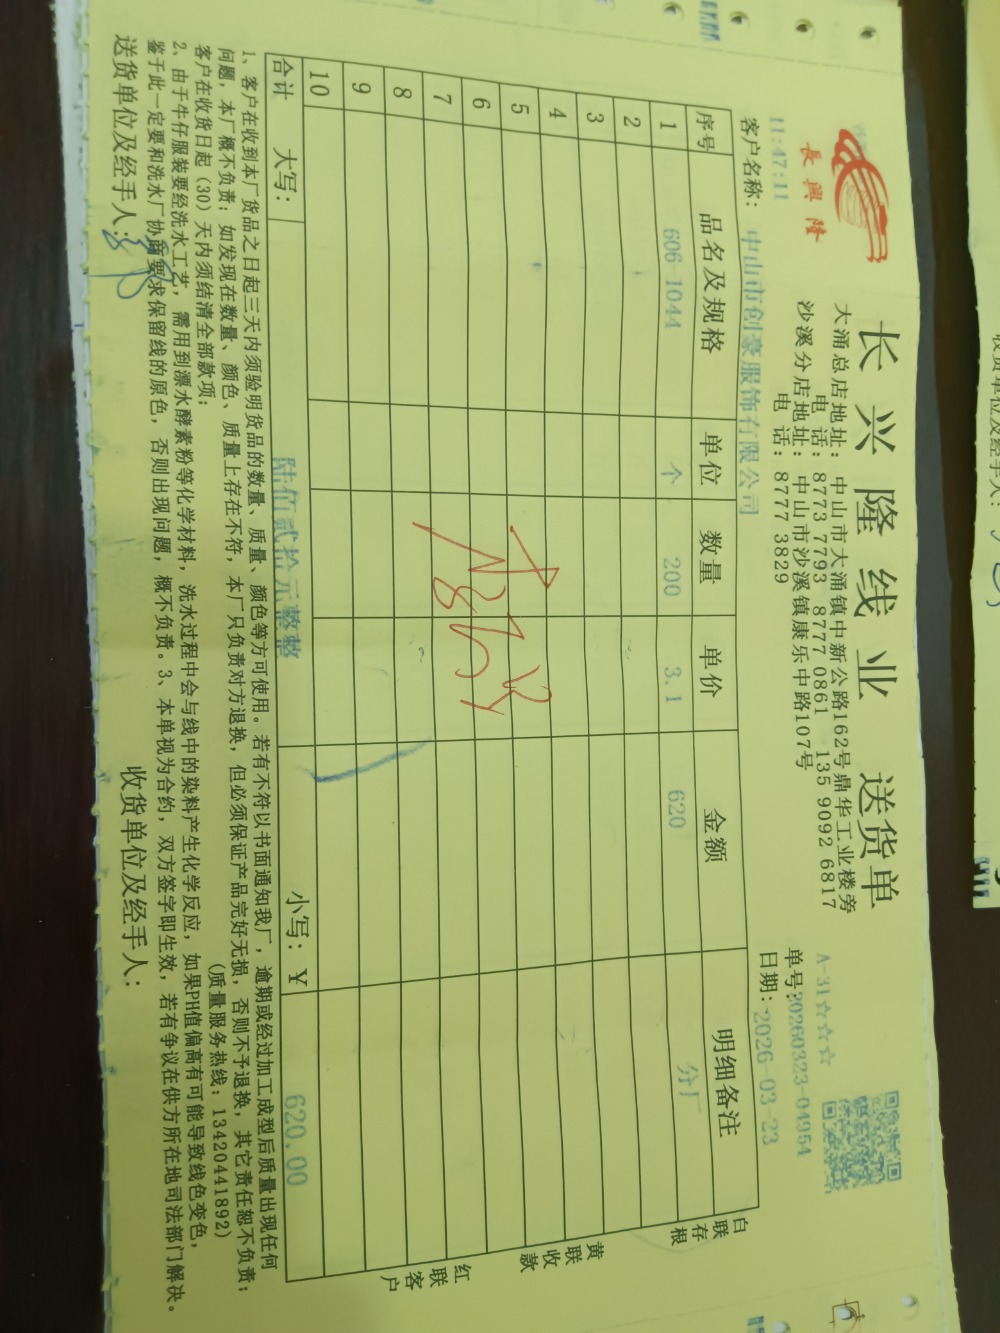 長興隆
长兴隆线业 送货单
大涌总店地址: 中山市大涌镇中新公路162号鼎华工业楼旁
电 话: 8773 7793 8777 0861 135 9092 6817
沙溪分店地址: 中山市沙溪镇康乐中路107号
电 话: 8777 3829
A-31☆☆☆
单号:20260323-04954
日期:2026-03-23
11:47:11
客户名称: 中山市创豪服饰有限公司
序号 品名及规格 单位 数量 单价 金额 明细备注
1 606-1044 个 200 3.1 620 分厂
2
3
4
5
6
7
8
9
10
合计 大写: 陆佰贰拾元整整 小写: ¥ 620.00
白联存根
黄联收款
红联客户
1、客户在收到本厂货品之日起三天内须验明货品的数量、质量、颜色等方可使用。若有不符以书面通知我厂，逾期或经过加工成型后质量出现任何
问题，本厂概不负责；如发现在数量、颜色、质量上存在不符，本厂只负责对方退换，但必须保证产品完好无损，否则不予退换，其它责任恕不负责；
客户在收货日起（30）天内须结清全部款项； (质量服务热线: 13420441892)
2、由于牛仔服装要经洗水工艺，需用到漂水酵素粉等化学材料，洗水过程中会与线中的染料产生化学反应，如果PH值偏高有可能导致线色变色，
鉴于此一定要和洗水厂协商要求保留线的原色，否则出现问题，概不负责。3、本单视为合约，双方签字即生效，若有争议在供方所在地司法部门解决。
送货单位及经手人:
收货单位及经手人:
收货单位及经手人: